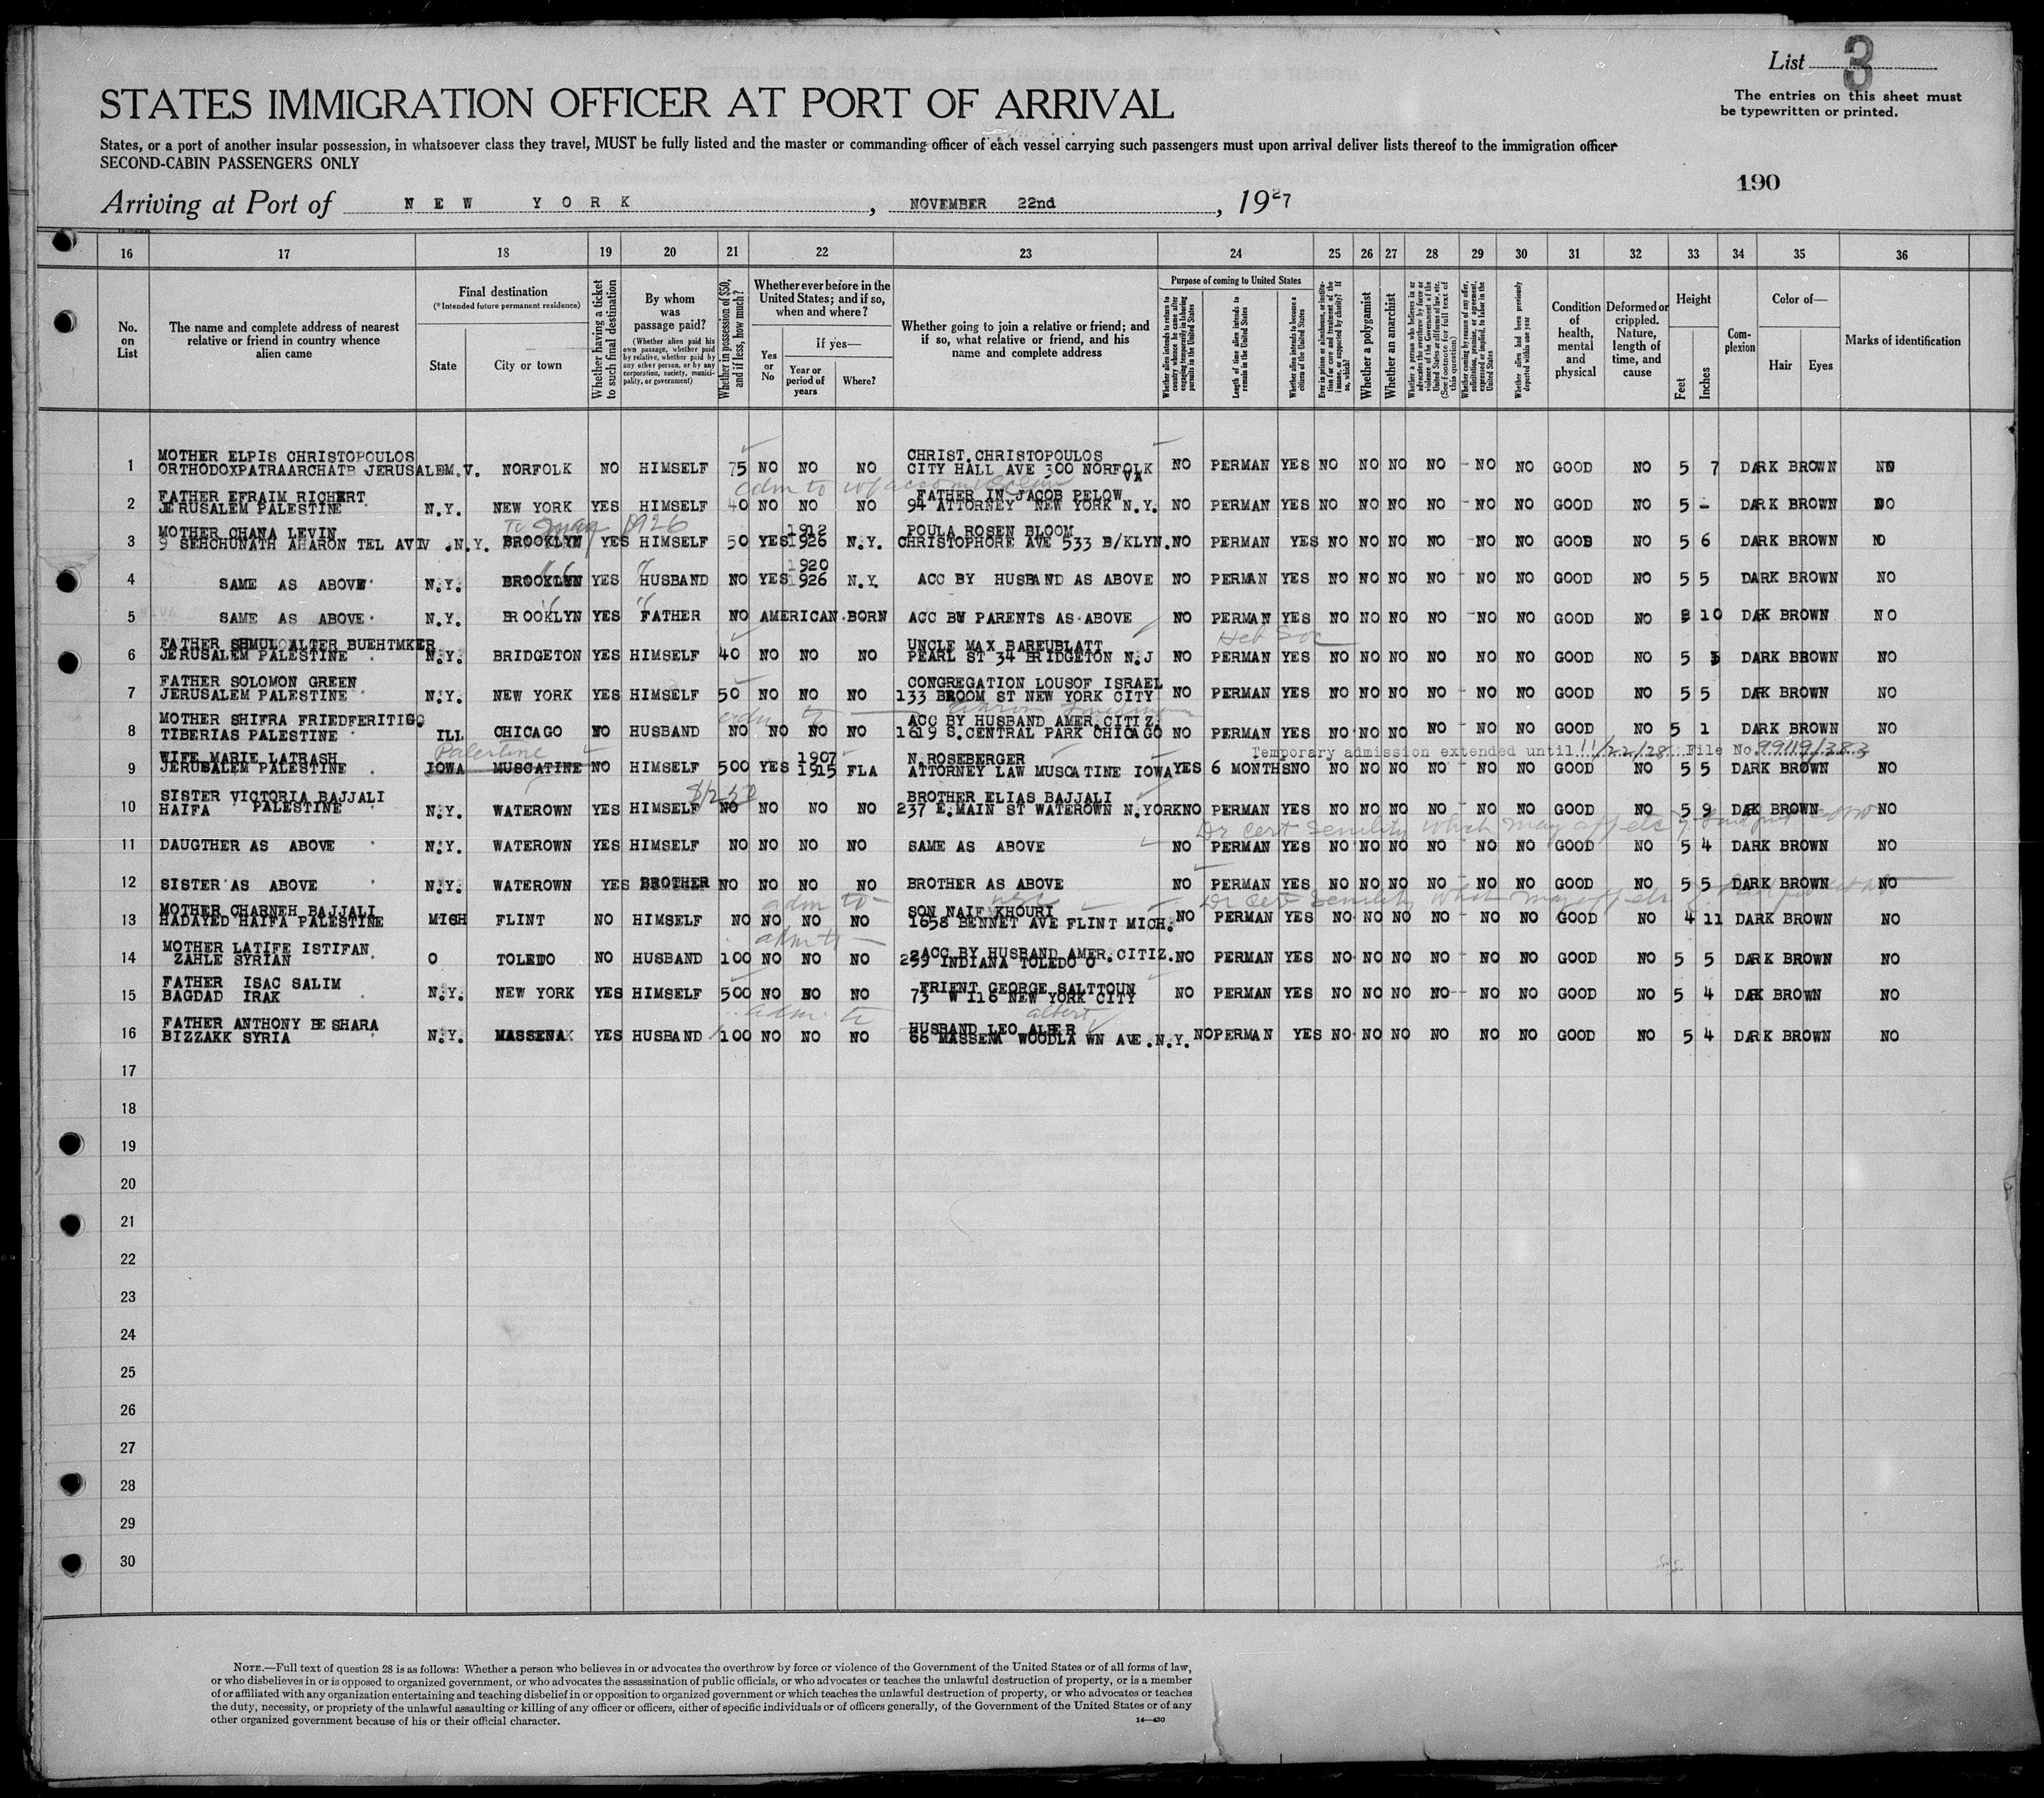 List 3
The entries on this sheet must
be typewritten or printed.
STATES IMMIGRATION OFFICER AT PORT OF ARRIVAL
States, or a port of another insular possession, in whatsoever class they travel, MUST be fully listed and the master or commanding officer of each vessel carrying such passengers must upon arrival deliver lists thereof to the immigration officer
SECOND-CABIN PASSENGERS ONLY
190
Arriving at Port of NEW YORK, NOVEMBER 22nd, 1927
16 17 18 19 20 21 22 23 24 25 26 27 28 29 30 31 32 33 34 35 36
No. on List
The name and complete address of nearest relative or friend in country whence alien came
Final destination
(*Intended future permanent residence)
State
City or town
Whether having a ticket to such final destination
By whom was passage paid?
(Whether alien paid his own passage, whether paid by relative, whether paid by any other person, or by any corporation, society, municipality, or government)
Whether in possession of $50, and if less, how much?
Whether ever before in the United States; and if so, when and where?
Yes or No
If yes—
Year or period of years
Where?
Whether going to join a relative or friend; and if so, what relative or friend, and his name and complete address
Purpose of coming to United States
Whether alien intends to return to country whence he came after engaging temporarily in laboring pursuits in the United States
Length of time alien intends to remain in the United States
Whether alien intends to become a citizen of the United States
Ever in prison or almshouse, or institution for care and treatment of the insane, or supported by charity? If so, which?
Whether a polygamist
Whether an anarchist
Whether a person who believes in or advocates the overthrow by force or violence of the Government of the United States or all forms of law, etc. (See footnote for full text of this question)
Whether coming by reason of any offer, solicitation, promise, or agreement, expressed or implied, to labor in the United States
Whether alien had been previously deported within one year
Condition of health, mental and physical
Deformed or crippled. Nature, length of time, and cause
Height
Feet
Inches
Complexion
Color of—
Hair
Eyes
Marks of identification
MOTHER ELPIS CHRISTOPOULOS CHRIST.CHRISTOPOULOS
1 ORTHODOXPATRAARCHATE JERUSALEM.V. NORFOLK NO HIMSELF 75 NO NO NO CITY HALL AVE 300 NORFOLK NO PERMAN YES NO NO NO NO NO NO GOOD NO 5 7 DARK BROWN NO
VA
adm to
FATHER EFRAIM RICHERT FATHER IN JACOB PELOW
2 JERUSALEM PALESTINE N.Y. NEW YORK YES HIMSELF 40 NO NO NO 94 ATTORNEY NEW YORK N.Y. NO PERMAN YES NO NO NO NO NO NO GOOD NO 5 - DARK BROWN NO
1926
MOTHER CHANA LEVIN 1912 POULA ROSEN BLOOM
3 9 SEHCHUNATH AHARON TEL AVIV .N.Y. BROOKLYN YES HIMSELF 50 YES 1926 N.Y. CHRISTOPHORE AVE 533 B/KLYN. NO PERMAN YES NO NO NO NO NO NO GOOD NO 5 6 DARK BROWN NO
1920
4 SAME AS ABOVE N.Y. BROOKLYN YES HUSBAND NO YES 1926 N.Y. ACC BY HUSBAND AS ABOVE NO PERMAN YES NO NO NO NO NO NO GOOD NO 5 5 DARK BROWN NO
5 SAME AS ABOVE N.Y. BROOKLYN YES FATHER NO AMERICAN BORN ACC BY PARENTS AS ABOVE NO PERMAN YES NO NO NO NO NO NO GOOD NO 10 DAK BROWN NO
Heb Soc
FATHER SHMUL ALTER BUEHTMKER UNCLE MAX BAREUBLATT
6 JERUSALEM PALESTINE N.Y. BRIDGETON YES HIMSELF 40 NO NO NO PEARL ST 34 BRIDGETON N.J NO PERMAN YES NO NO NO NO NO NO GOOD NO 5 DARK BROWN NO
FATHER SOLOMON GREEN CONGREGATION LOUSOF ISRAEL
7 JERUSALEM PALESTINE N.Y. NEW YORK YES HIMSELF 50 NO NO NO 133 BROOM ST NEW YORK CITY NO PERMAN YES NO NO NO NO NO NO GOOD NO 5 5 DAK BROWN NO
MOTHER SHIFRA FRIEDFERITIGG ACC BY HUSBAND AMER.CITIZ.
8 TIBERIAS PALESTINE ILL CHICAGO NO HUSBAND NO NO NO NO 1619 S.CENTRAL PARK CHICAGO NO PERMAN YES NO NO NO NO NO NO GOOD NO 5 1 DARK BROWN NO
Palestine Temporary admission extended until 11/22/28 File No. 99119/383
WIFE MARIE LATRASH 1907 N ROSEBERGER
9 JERUSALEM PALESTINE IOWA MUSCATINE NO HIMSELF 500 YES 1915 FLA ATTORNEY LAW MUSCATINE IOWA YES 6 MONTHS NO NO NO NO NO NO NO GOOD NO 5 5 DARK BROWN NO
SISTER VICTORIA BAJJALI BROTHER ELIAS BAJJALI
10 HAIFA PALESTINE N.Y. WATEROWN YES HIMSELF NO NO NO NO 237 E.MAIN ST WATEROWN N.YORK NO PERMAN YES NO NO NO NO NO NO GOOD NO 5 9 DAK BROWN NO
Dr cert senility which may aff etc
11 DAUGTHER AS ABOVE N.Y. WATEROWN YES HIMSELF NO NO NO NO SAME AS ABOVE NO PERMAN YES NO NO NO NO NO NO GOOD NO 5 4 DARK BROWN NO
12 SISTER AS ABOVE N.Y. WATEROWN YES BROTHER NO NO NO NO BROTHER AS ABOVE NO PERMAN YES NO NO NO NO NO NO GOOD NO 5 5 DARK BROWN NO
adm to Dr Cert Senility which may aff etc
MOTHER CHARNEH BAJJALI SON NAIF KHOURI
13 HADAYED HAIFA PALESTINE MICH FLINT NO HIMSELF NO NO NO NO 1658 BENNET AVE FLINT MICH. NO PERMAN YES NO NO NO NO NO NO GOOD NO 4 11 DARK BROWN NO
adm to
MOTHER LATIFE ISTIFAN ACC BY HUSBAND AMER.CITIZ.
14 ZAHLE SYRIAN O TOLEDO NO HUSBAND 100 NO NO NO 239 INDIANA TOLEDO O NO PERMAN YES NO NO NO NO NO NO GOOD NO 5 5 DARK BROWN NO
FATHER ISAC SALIM FRIENT GEORGE SALTTOUN
15 BAGDAD IRAK N.Y. NEW YORK YES HIMSELF 500 NO NO NO 73 W 116 NEW YORK CITY NO PERMAN YES NO NO NO NO NO NO GOOD NO 5 4 DAK BROWN NO
adm to albert
FATHER ANTHONY BESHARA HUSBAND LEO ALBER
16 BIZZAKK SYRIA N.Y. MASSENA YES HUSBAND 100 NO NO NO 66 MASSENA WOODLAWN AVE.N.Y. NO PERMAN YES NO NO NO NO NO NO GOOD NO 5 4 DARK BROWN NO
17
18
19
20
21
22
23
24
25
26
27
28
29
30
NOTE.—Full text of question 28 is as follows: Whether a person who believes in or advocates the overthrow by force or violence of the Government of the United States or of all forms of law,
or who disbelieves in or is opposed to organized government, or who advocates the assassination of public officials, or who advocates or teaches the unlawful destruction of property, or is a member
of or affiliated with any organization entertaining and teaching disbelief in or opposition to organized government or which teaches the unlawful destruction of property, or who advocates or teaches
the duty, necessity, or propriety of the unlawful assaulting or killing of any officer or officers, either of specific individuals or of officers generally, of the Government of the United States or of any
other organized government because of his or their official character.
14—430